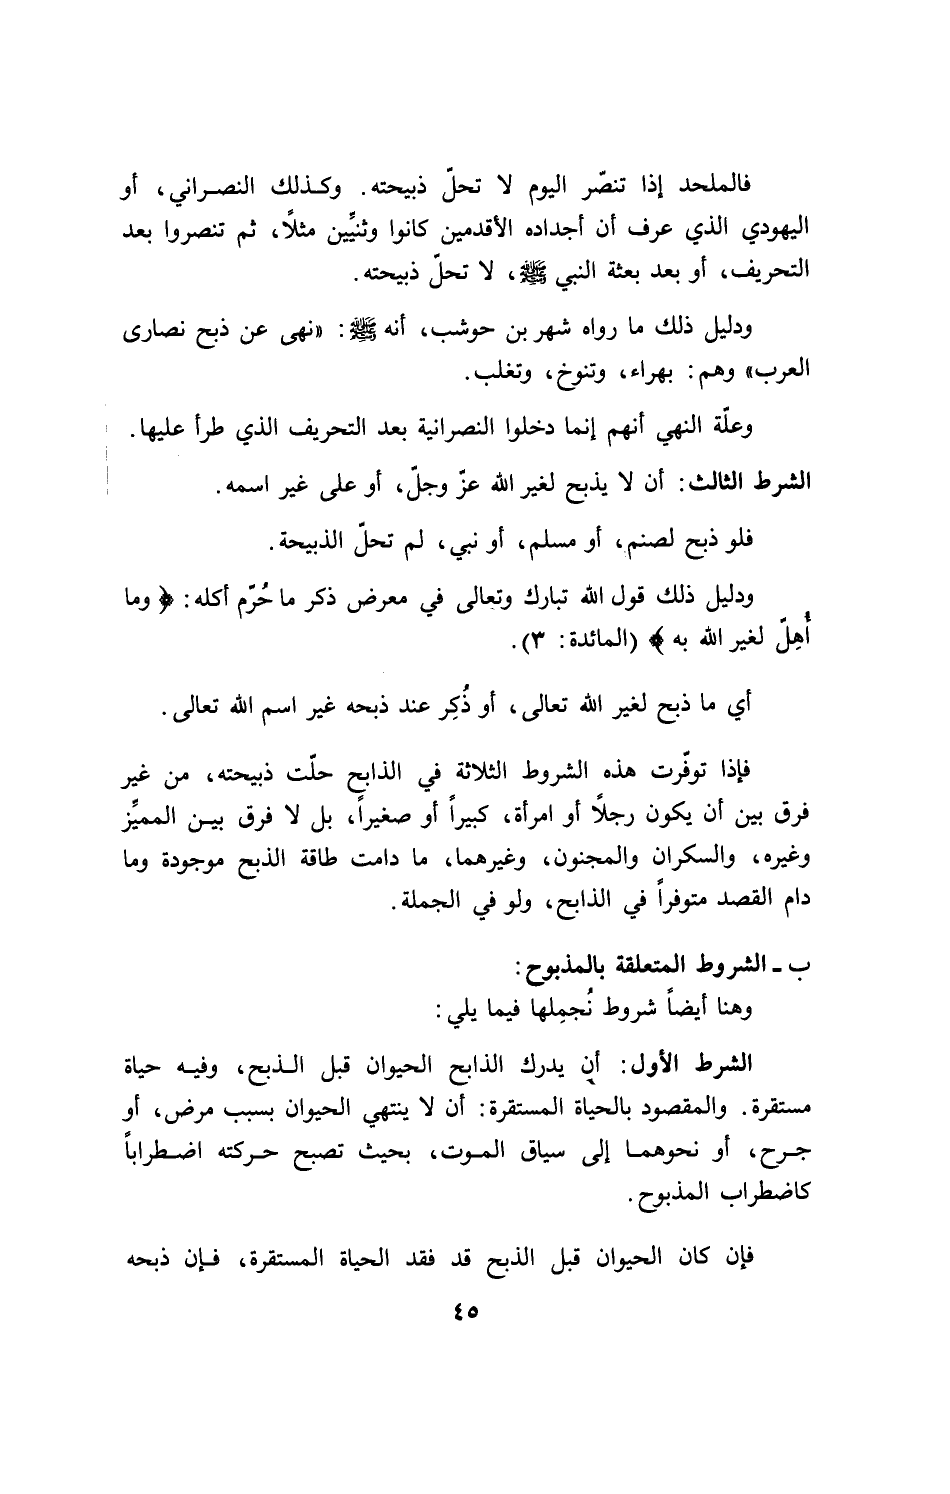 فالملحد إذا تنصّر اليوم لا تحلّ ذبيحته. وكذلك النصراني، أو
اليهودي الذي عرف أن أجداده الأقدمين كانوا وثنيِّين مثلاً، ثم تنصروا بعد
التحريف، أو بعد بعثة النبي ﷺ، لا تحلّ ذبيحته.
ودليل ذلك ما رواه شهر بن حوشب، أنه ﷺ: «نهى عن ذبح نصارى
العرب» وهم: بهراء، وتنوخ، وتغلب.
وعلّة النهي أنهم إنما دخلوا النصرانية بعد التحريف الذي طرأ عليها.
الشرط الثالث: أن لا يذبح لغير الله عزّ وجلّ، أو على غير اسمه.
فلو ذبح لصنم، أو مسلم، أو نبي، لم تحلّ الذبيحة.
ودليل ذلك قول الله تبارك وتعالى في معرض ذكر ما حُرّم أكله: ﴿ وما
أُهِلّ لغير الله به ﴾ (المائدة: ٣).
أي ما ذبح لغير الله تعالى، أو ذُكِر عند ذبحه غير اسم الله تعالى.
فإذا توفّرت هذه الشروط الثلاثة في الذابح حلّت ذبيحته، من غير
فرق بين أن يكون رجلاً أو امرأة، كبيراً أو صغيراً، بل لا فرق بين المميِّز
وغيره، والسكران والمجنون، وغيرهما، ما دامت طاقة الذبح موجودة وما
دام القصد متوفراً في الذابح، ولو في الجملة.
ب ـ الشروط المتعلقة بالمذبوح:
وهنا أيضاً شروط نُجمِلها فيما يلي:
الشرط الأول: أن يدرك الذابح الحيوان قبل الذبح، وفيه حياة
مستقرة. والمقصود بالحياة المستقرة: أن لا ينتهي الحيوان بسبب مرض، أو
جرح، أو نحوهما إلى سياق الموت، بحيث تصبح حركته اضطراباً
كاضطراب المذبوح.
فإن كان الحيوان قبل الذبح قد فقد الحياة المستقرة، فإن ذبحه
٤٥